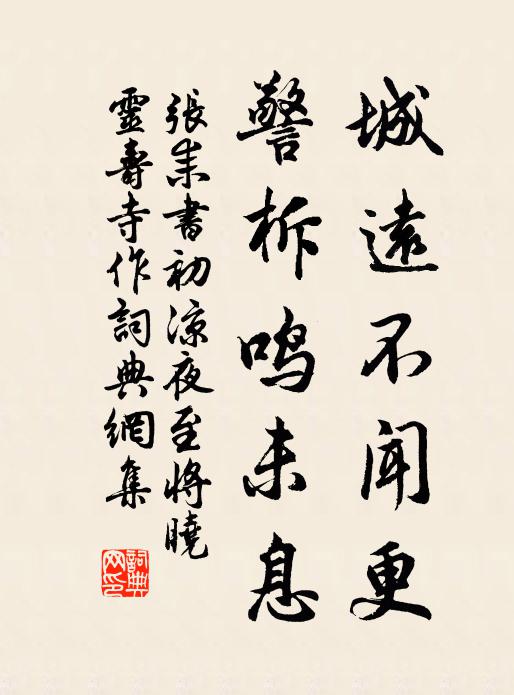 城遠不闻更
警柝鸣未息
張耒書初凉夜至將曉
靈壽寺作詞典網集
詞典网印